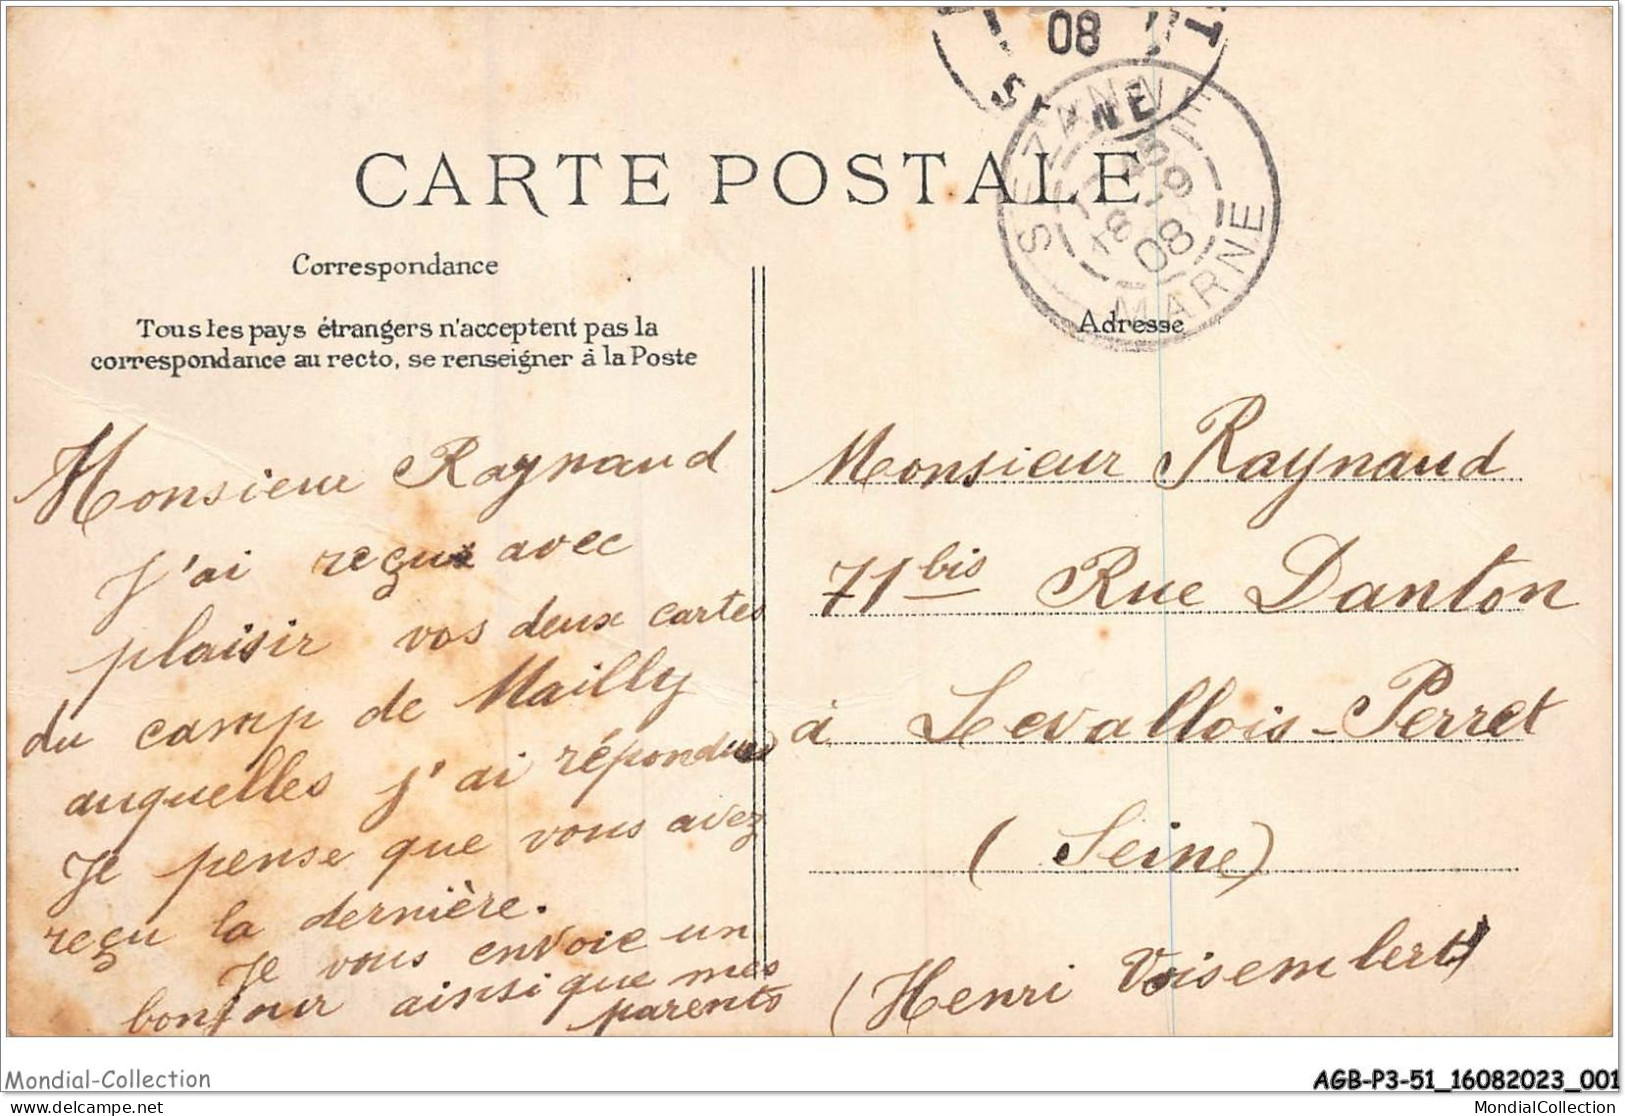 08
SEINE
SEZANNE
18 -9
08
MARNE
CARTE POSTALE
Correspondance
Tous les pays étrangers n'acceptent pas la
correspondance au recto, se renseigner à la Poste
Adresse
Monsieur Raynaud
J'ai reçu avec
plaisir vos deux cartes
du camp de Mailly
auquelles j'ai répondu
Je pense que vous avez
reçu la dernière.
Je vous envoie un
bonjour ainsi que mes
parents
Monsieur Raynaud
71 bis Rue Danton
à Levallois-Perret
(Seine)
(Henri Voisembert)
Mondial-Collection
AGB-P3-51_16082023_001
delcampe.net
MondialCollection